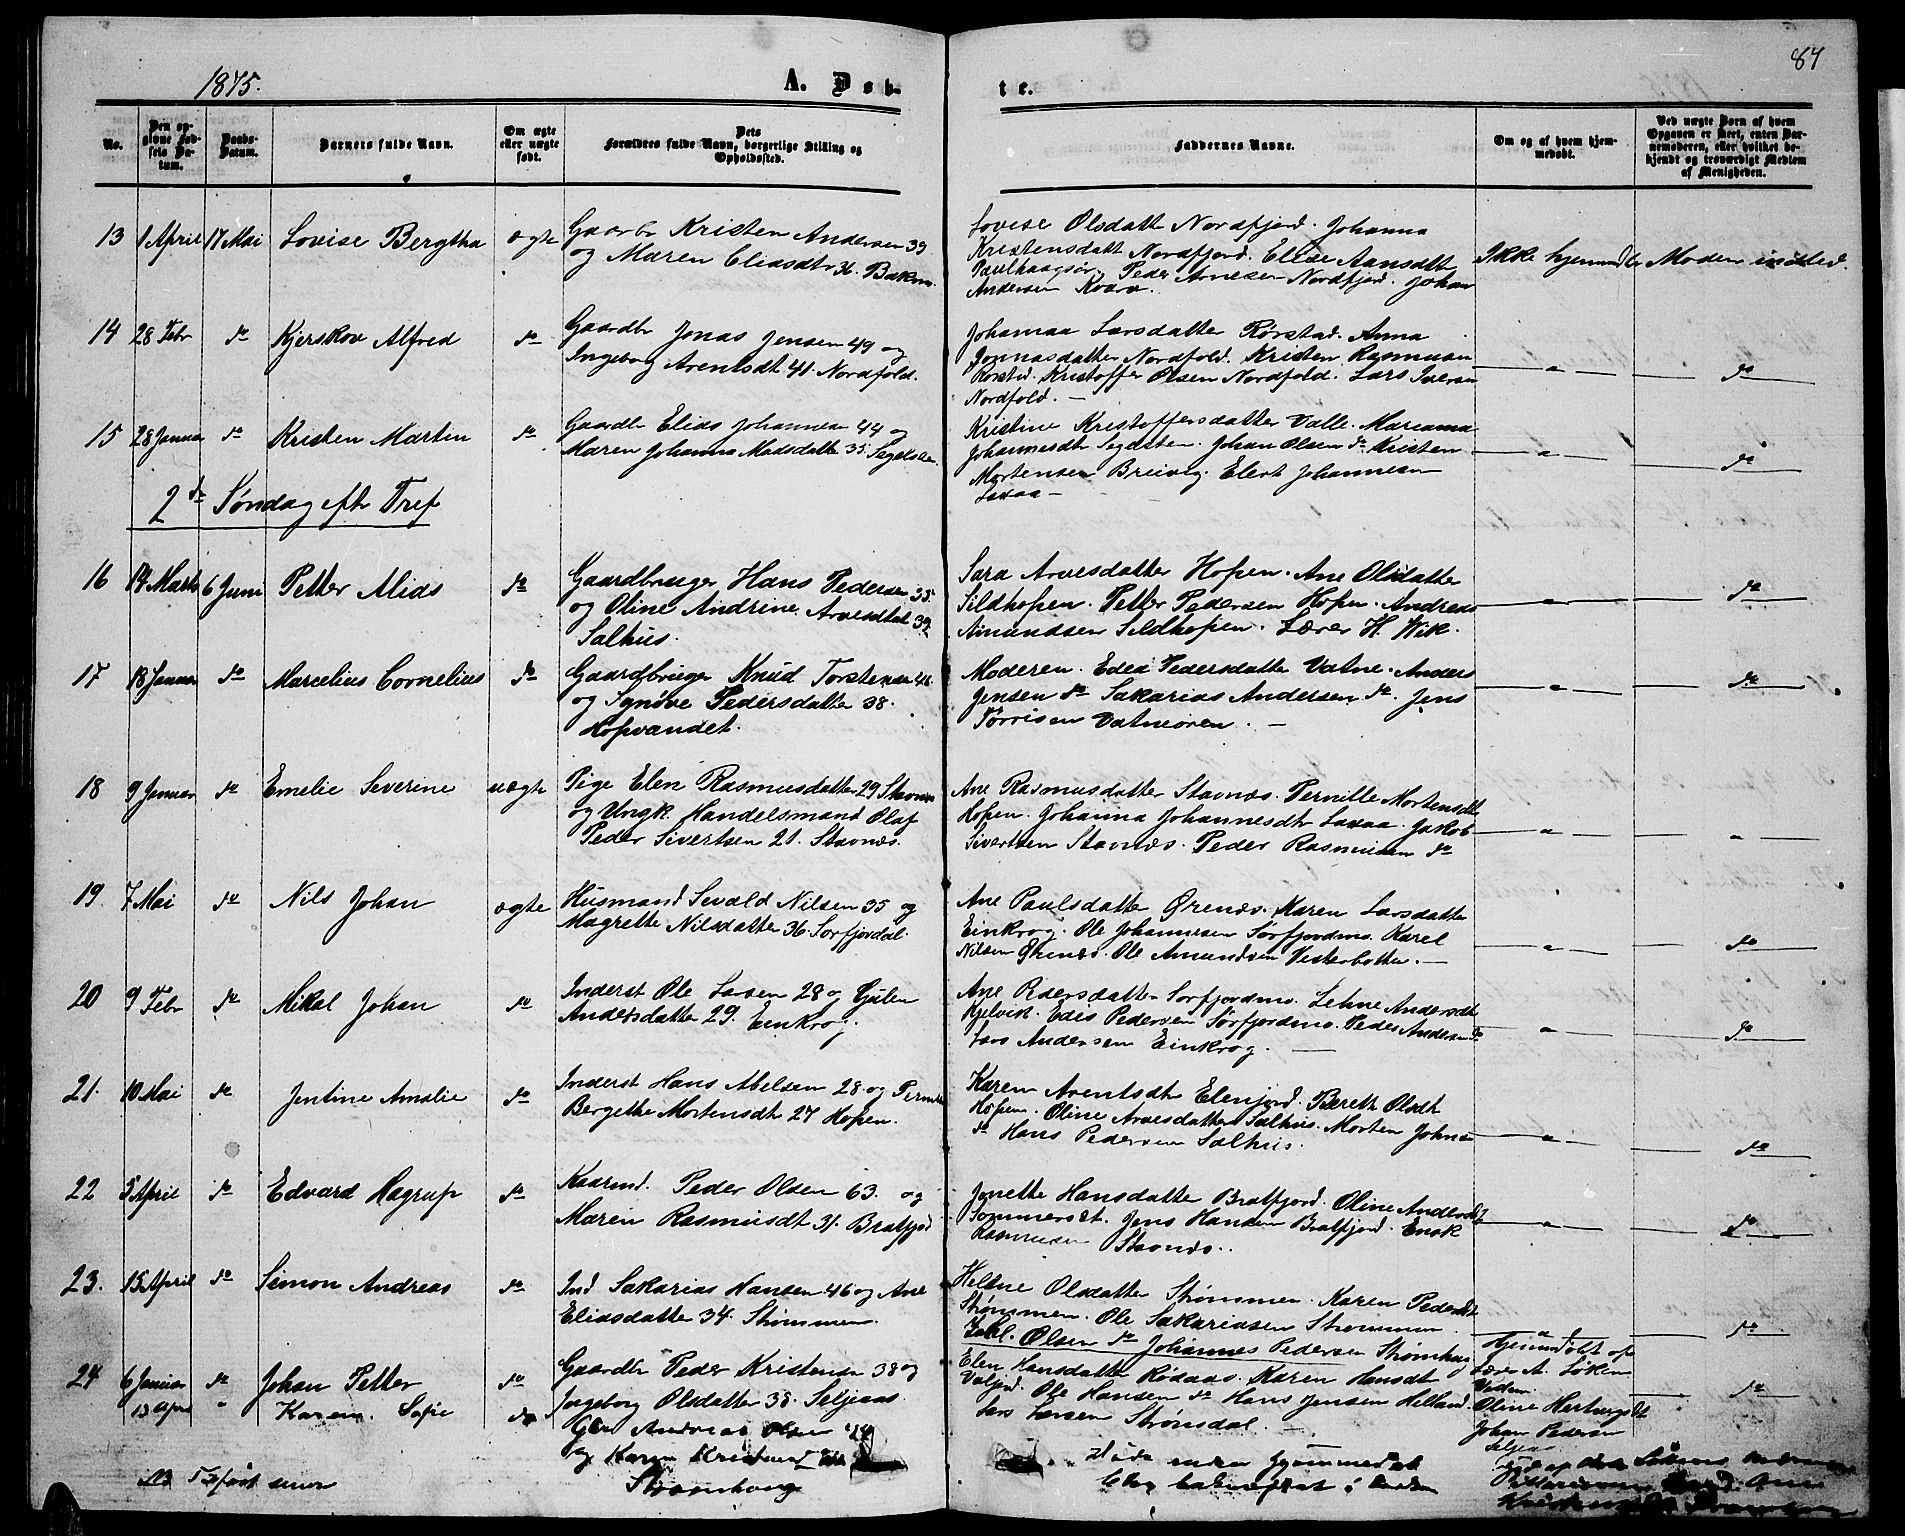 84
1875.
A. Døb-
te.
No.
Den op-
givne Fød-
sels Da-
tum.
Daabs-
Datum.
Barnets fulde Navn.
Om ægte
eller uægte
født.
Dets
Forældres fulde Navn, borgerlige Stilling og
Opholdssted.
Faddernes Navne.
Om og af hvem hjem-
medøbt.
Ved uægte Børn af hvem
Opgaven er skeet, enten Bar-
nemoderen, eller hvilket be-
kjendt og troværdigt Medlem
af Menigheden.
13 1 April 17 Mai Lovise Bergtha ægte
Gaarbr Kristen Andersen 39
og Maren Eliasdtr 36.
Lovise Olsdatte Nordfjord. Johanna
Kristensdatt Nordfjord. Elise Aansdatt
Peder Arnesen Nordfjord. Johan
Andersen Kvarv.
Ikke hjemmedbt
Moderen
14 28 Febr do Kjerskov Alfred do
Gaardbr Jonas Jensen 49 og
Ingeborg Arentsdt 41. Nordfold.
Johanna Larsdatter Rørstad. Anna
Jonnasdatter Nordfold. Kristen Rasmusen
Rørstad. Kristoffer Olsen Nordfold. Lars Iversen
Nordfold. —
— " — do
15 28 Januar do Kristen Martin do
Gaardbr Elias Johannesen 44 og
Maren Johanna Madsdatte 35.
Kristine Kristoffersdatter Valle. Marianna
Johannesdt Johan Olsen do Kristen
Mortensen Breivig. Elert Johannesen
Laxaa —
— " — do
2de Søndag eftr Tref
16 14 Marts 6 Juni Petter Mias do
Gaardbruger Hans Pedersen 35.
og Oline Andrine Arvesdtat 39.
Salhus.
Sara Arvesdatter Hopen. Ane Olsdatte
Sildhopen. Petter Pedersen Hopen. Andreas
Amundsen Sildhopen. Lærer H. Wik.
— " — do
17 18 Januar do Marcelius Cornelius do
Gaardbruger Knud Torstensen 46.
og Synøve Pedersdatter 38.
Hopvandet.
Moderen. Edea Pedersdatte Vatne. Anders
Jensen do Sakarias Andersen do. Jens
Tørrisen Vatneøren. —
— " — do
18 9 Januar do Emelie Severine uægte
Pige Elen Rasmusdatter 29 Stavnes
og Ungk. Handelsmand Olaf
Peder Sivertsen 21. Stavnæs.
Ane Rasmusdatter Stavnæs. Pernille Mortensdtt
Hopen. Johanna Johannesdtr Laxaa. Jakob
Sivertsen Stavnæs. Peder Rasmusen do
— " — "
19. 7 Mai do Nils Johan ægte
Husmand Sevald Nilsen 35 og
Magrette Nilsdatter 36. Sørfjordal.
Ane Paulsdatter Ørenæs. Karen Larsdatte
Einkrog. Ole Johannesen Sørfjordmo. Karel
Nilsen Ørenæs. Ole Amundsen Vesterbotten. —
— " — do
20 9 Febr do Mikal Johan do
Inderst Ole Larsen 28 og Gjulen
Andersdatte 29. Einkrog.
Ane Pedersdatter Sørfjordmo. Lehne Andersdt
Kjelvik. Edis Pedersen Sørfjordmo. Peder Andersen do
Lars Andersen Einkrog. —
— " — do
21. 10 Mai do Jentine Amalie do
Inderst Hans Abelsen 28. og Pernille
Bergitte Mortensdt 27 Hopen.
Karen Arentsdt Elenfjord. Bereth Olsdt
Hopen. Oline Arvesdatter Salhus. Morten Johns
do Hans Pedersen Salhus.
— " — do
22 5 April do Edvard Hagrup do
Kaarmd. Peder Olsen 63. og
Maren Rasmusdt 31. Bratfjord
Jonette Hansdatte Bratfjord. Oline Andersdt
Sommerset. Jens Hansen Bratfjord. Enok
Rasmusen Stavnæs.
— " — do
23. 15 April do Simon Andreas do
Ind Sakarias Hansen 46 og Ane
Eliasdatte 34. Strømmen.
Hellne Olsdatte Strømmen. Karen Pedersdt
Strømmen. Ole Sakariasen Strømmen
Olsen do Johannes Pedersen Strømhaug
— " — do
24 6 Januar do Johan Petter do
Gaardbr Peder Kristensen 38 og
Ingeborg Olsdatter 38. Seljeaas
Elen Hansdatte Rødaas. Karen Hansdt
Valjord. Ole Hansen do Hans Jensen Helland.
Lars Larsen Strømsdal. —
Hjemmdøbt af
Lærer A. Løken
Oline Hartvigsdt
Johan Pedersen
Seljeaas
do
13 April " Karen Sofie do
Gbr Andreas Olsen
og Karen
Strømhaug
NB Tilført senere